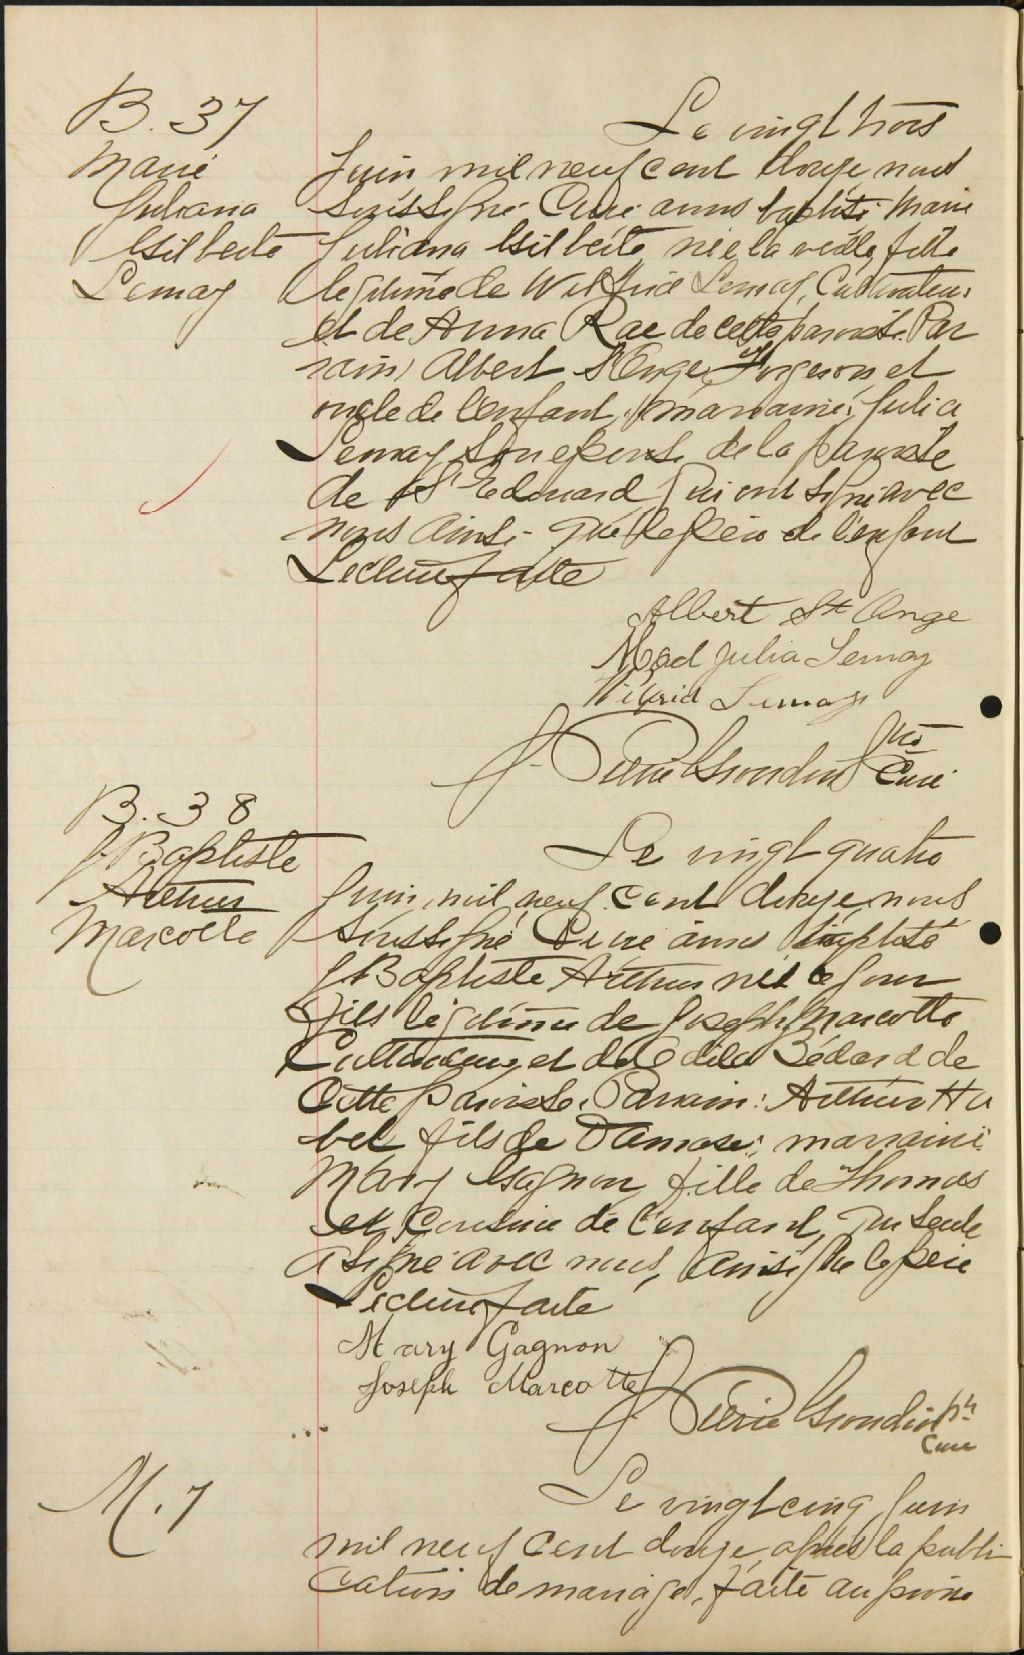 B. 37
Marie
Juliana
Gilberte
Lemay
Le vingt trois
Juin mil neuf cent douze nous
soussigné Curé avons baptisé Marie
Juliana Gilberte née la veille fille
légitime de Wilfrid Lemay, Cultivateur
et de Anna Rae de cette paroisse. Par
rain Albert St Onge, forgeron et
oncle de l'enfant, marraine, Julia
Lemay son épouse de la paroisse
de St Edouard qui ont signé avec
nous ainsi que le père de l'enfant
Lecture faite
Albert St Ange
Mad Julia Lemay
Wilfrid Lemay
J. Pierre Grondin Ptre
Curé
B. 38
J. Baptiste
Arthur
Marcotte
Le vingt quatre
Juin mil neuf cent douze nous
soussigné Curé avons baptisé
J. Baptiste Arthur né le jour
fils légitime de Joseph Marcotte
Cultivateur et de Odila Bédard de
Cette paroisse. Parrain: Arthur Ha
bel fils de Damase; marraine
Mary Gagnon, fille de Thomas
et Cousine de l'enfant, qui seule
a signé avec nous, ainsi que le père
Lecture faite
Mary Gagnon
Joseph Marcotte
J. Pierre Grondin ptr
Curé
M. 7
Le vingt cinq Juin
mil neuf cent douze, après la publi
cation de mariage, faite au prône